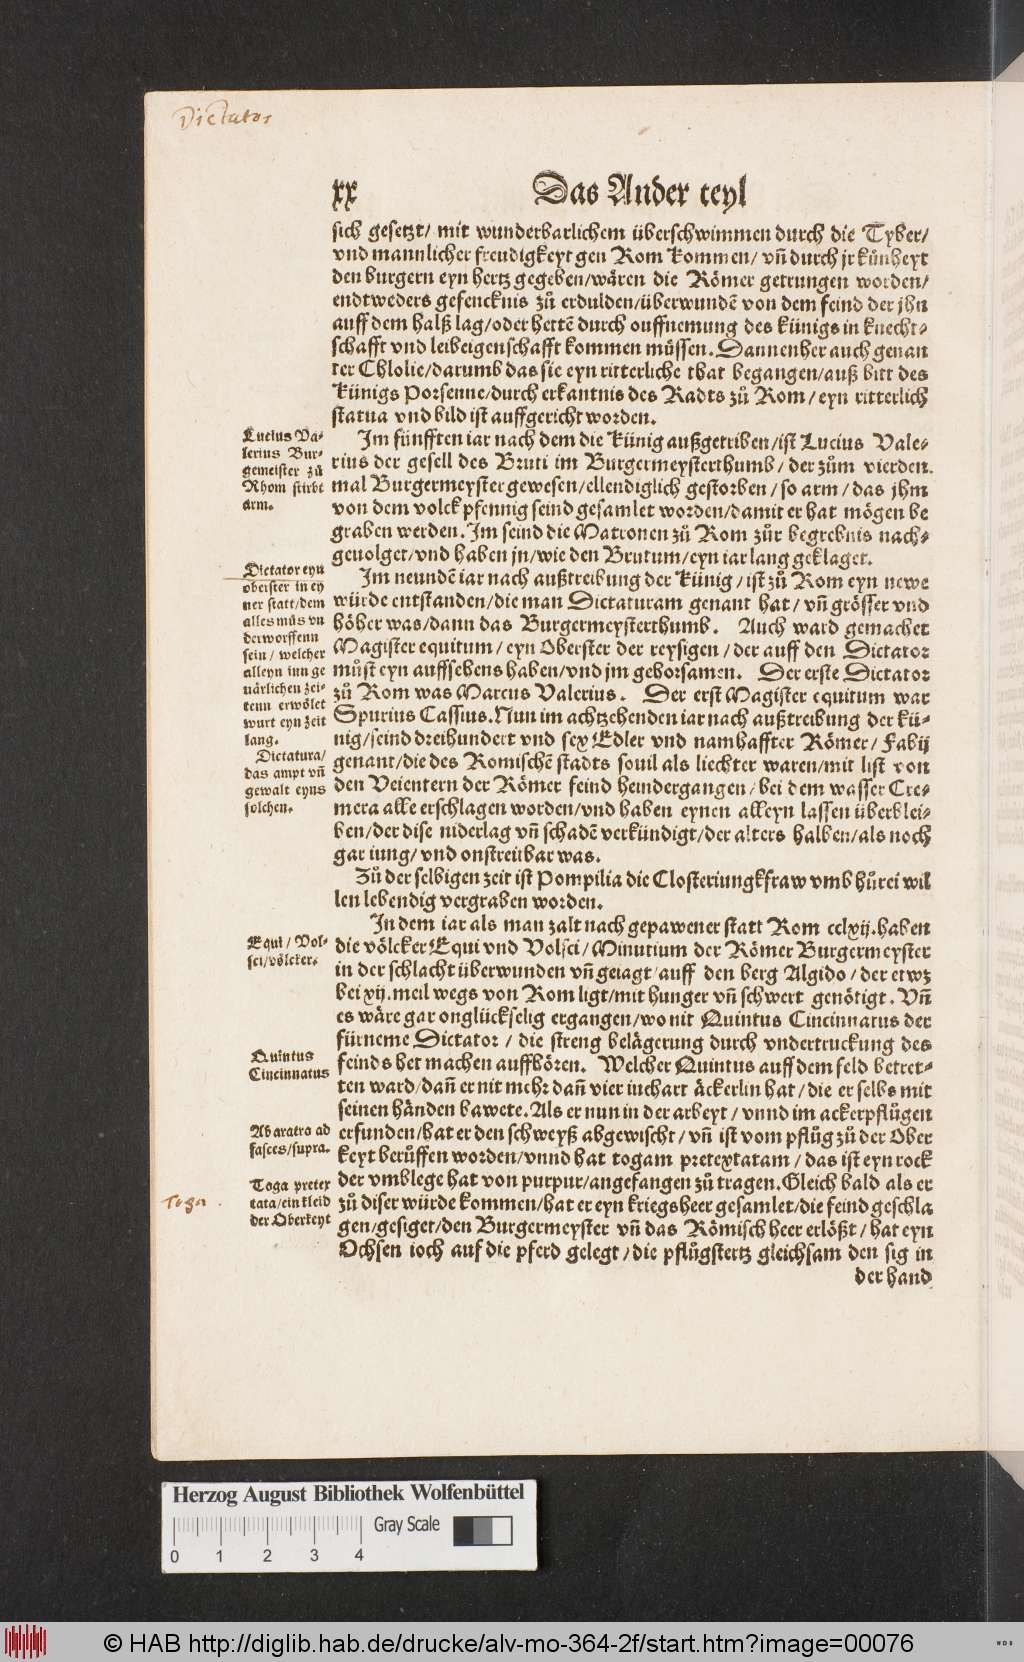 Dictator
xx
Das Ander teyl
sich gesetzt/ mit wunderbarlichem überschwimmen durch die Tyber/
vnd mannlicher freudigkeyt gen Rom kommen/ vñ durch jr kůnheyt
den burgern eyn hertz gegeben/wären die Römer getrungen worden/
endtweders gefencknis zů erdulden/überwundẽ von dem feind der jhn
auff dem halß lag/oder hettẽ durch ouffnemung des künigs in knecht⸗
schafft vnd leibeigenschafft kommen müssen. Dannenher auch genan
ter Chlolie/darumb das sie eyn ritterliche that begangen/auß bitt des
Künigs Porsenne/durch erkantnis des Radts zů Rom/ eyn ritterlich
statua vnd bild ist auffgericht worden.
Im fünfften iar nach dem die Künig außgetriben/ist Lucius Vale⸗
rius der gesell des Bruti im Burgermeysterthumb/ der zům vierden.
mal Burgermeyster gewesen/ellendiglich gestorben/ so arm/ das jhm
von dem volck pfennig seind gesamlet worden/damit er hat mögen be
graben werden. Im seind die Matronen zů Rom zůr begrebnis nach⸗
geuolget/vnd haben jn/wie den Brutum/eyn iar lang geklaget.
Im neundẽ iar nach außtreibung der Künig/ ist zů Rom eyn newe
würde entstanden/die man Dictaturam genant hat/ vñ grösser vnd
höher was/dann das Burgermeysterthumb. Auch ward gemachet
Magister equitum/ eyn Oberster der reysigen/ der auff den Dictator
můst eyn auffsehens haben/vnd jm gehorsamen. Der erste Dictator
zů Rom was Marcus Valerius. Der erst Magister equitum war
Spurius Cassius. Nun im achtzehenden iar nach außtreibung der kü⸗
nig/seind dreihundert vnd sex Edler vnd namhaffter Römer/ Fabij
genant/die des Romischẽ stadts souil als liechter waren/mit list von
den Veientern der Römer feind heindergangen/ bei dem wasser Cre⸗
mera alle erschlagen worden/vnd haben eynen alleyn lassen überblei⸗
ben/der dise niderlag vñ schadẽ verkündigt/der alters halben/als noch
gar iung/ vnd onstreitbar was.
Zů der selbigen zeit ist Pompilia die Closteriungkfraw vmb hůrei wil
len lebendig vergraben worden.
In dem iar als man zalt nach gepawener statt Rom cclxij. haben
die völcker Equi vnd Volsci/ Minutium der Römer Burgermeyster
in der schlacht überwunden vñ geiagt/auff den berg Algido/ der etwz
bei xij. meil wegs von Rom ligt/mit hunger vñ schwert genötigt. Vñ
es wäre gar onglückselig ergangen/wo nit Quintus Cincinnatus der
fürneme Dictator/ die streng belägerung durch vndertruckung des
feinds het machen auffhören. Welcher Quintus auff dem feld betret⸗
ten ward/dañ er nit mehr dañ vier iuchart äckerlin hat/ die er selbs mit
seinen händen bawete. Als er nun in der arbeyt/ vnnd im ackerpflůgen
erfunden/hat er den schweyß abgewischt/ vñ ist vom pflůg zů der Ober
keyt berůffen worden/vnnd hat togam pretextatam/ das ist eyn rock
der vmblege hat von purpur/angefangen zů tragen. Gleich bald als er
zů diser würde kommen/hat er eyn kriegsheer gesamlet/die feind geschla
gen/gesiget/den Burgermeyster vñ das Römisch heer erlößt/ hat eyn
Ochsen ioch auf die pferd gelegt/die pflůgstertz gleichsam den sig in
der hand
Lucius Va⸗
lerius Bur⸗
gemeister zů
Rhom stirbt
arm.
Dictator eyn
oberster in ey
ner statt/dem
alles můs vn
derworffenn
sein/ welcher
alleyn inn ge
uärlichen zei⸗
tenn erwölet
wurt eyn zeit
lang.
Dictatura/
das ampt vñ
gewalt eyns
solchen.
Equi/ Vol⸗
sci/völcker.
Quintus
Cincinnatus
Ab aratro ad
fasces/supra.
Toga pretex
tata/ein kleid
der Oberkeyt
Toga.
Herzog August Bibliothek Wolfenbüttel
Gray Scale
0 1 2 3 4
© HAB http://diglib.hab.de/drucke/alv-mo-364-2f/start.htm?image=00076